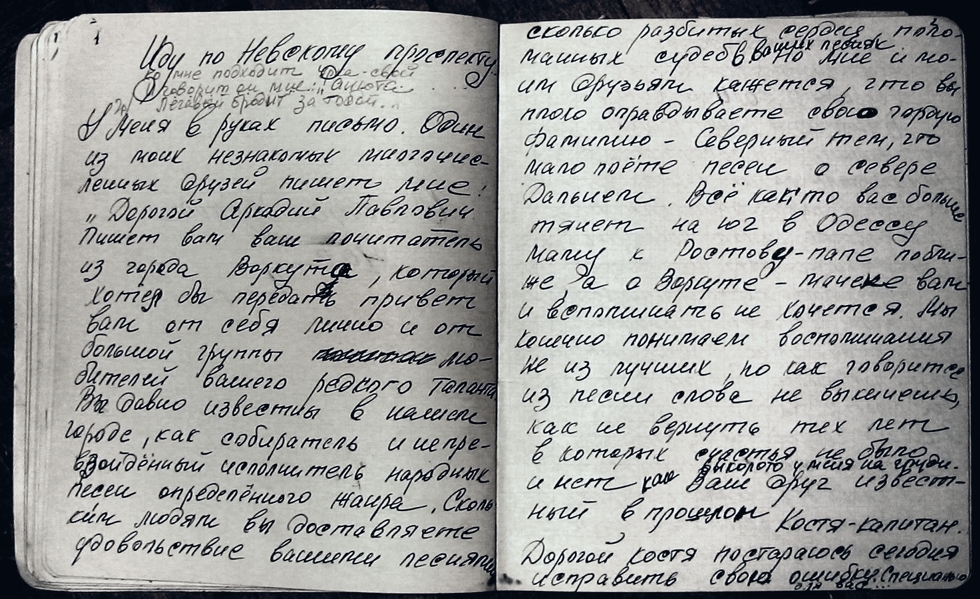 1
Иду по Невскому проспекту
ко мне подходит ура-свой
и говорит он мне: „Анюта
Легавый бродит за тобой...
У меня в руках письмо. Один
из моих незнакомых многочис-
ленных друзей пишет мне:
„Дорогой Аркадий Павлович
Пишет вам ваш почитатель
из города Воркута, который
хотел бы передать привет
вам от себя лично и от
большой группы лю-
бителей вашего редкого таланта
Вы давно известны в нашем
городе, как собиратель и непре-
взойдённый исполнитель народных
песен определённого жанра. Сколь
ким людям вы доставляете
удовольствие вашими песнями
2
сколько разбитых сердец, поло-
манных судеб в ваших песнях но мне и мо-
им друзьям кажется, что вы
плохо оправдываете свою гордую
фамилию - Северный тем, что
мало поёте песен о севере
Дальнем. Всё как-то вас больше
тянет на юг в Одессу
маму к Ростову-папе побли-
же Да о Воркуте - маче вам
и вспоминать не хочется. Мы
конечно понимаем воспоминания
не из лучших, но как говорится
из песни слова не выкинешь,
как не вернуть тех лет
в которых счастья не было
и нет как выколото у меня на груди.
Ваш друг извест-
ный в прошлом Костя-капитан.
Дорогой костя постараюсь сегодня
исправить свою ошибку. Специально
для вас...